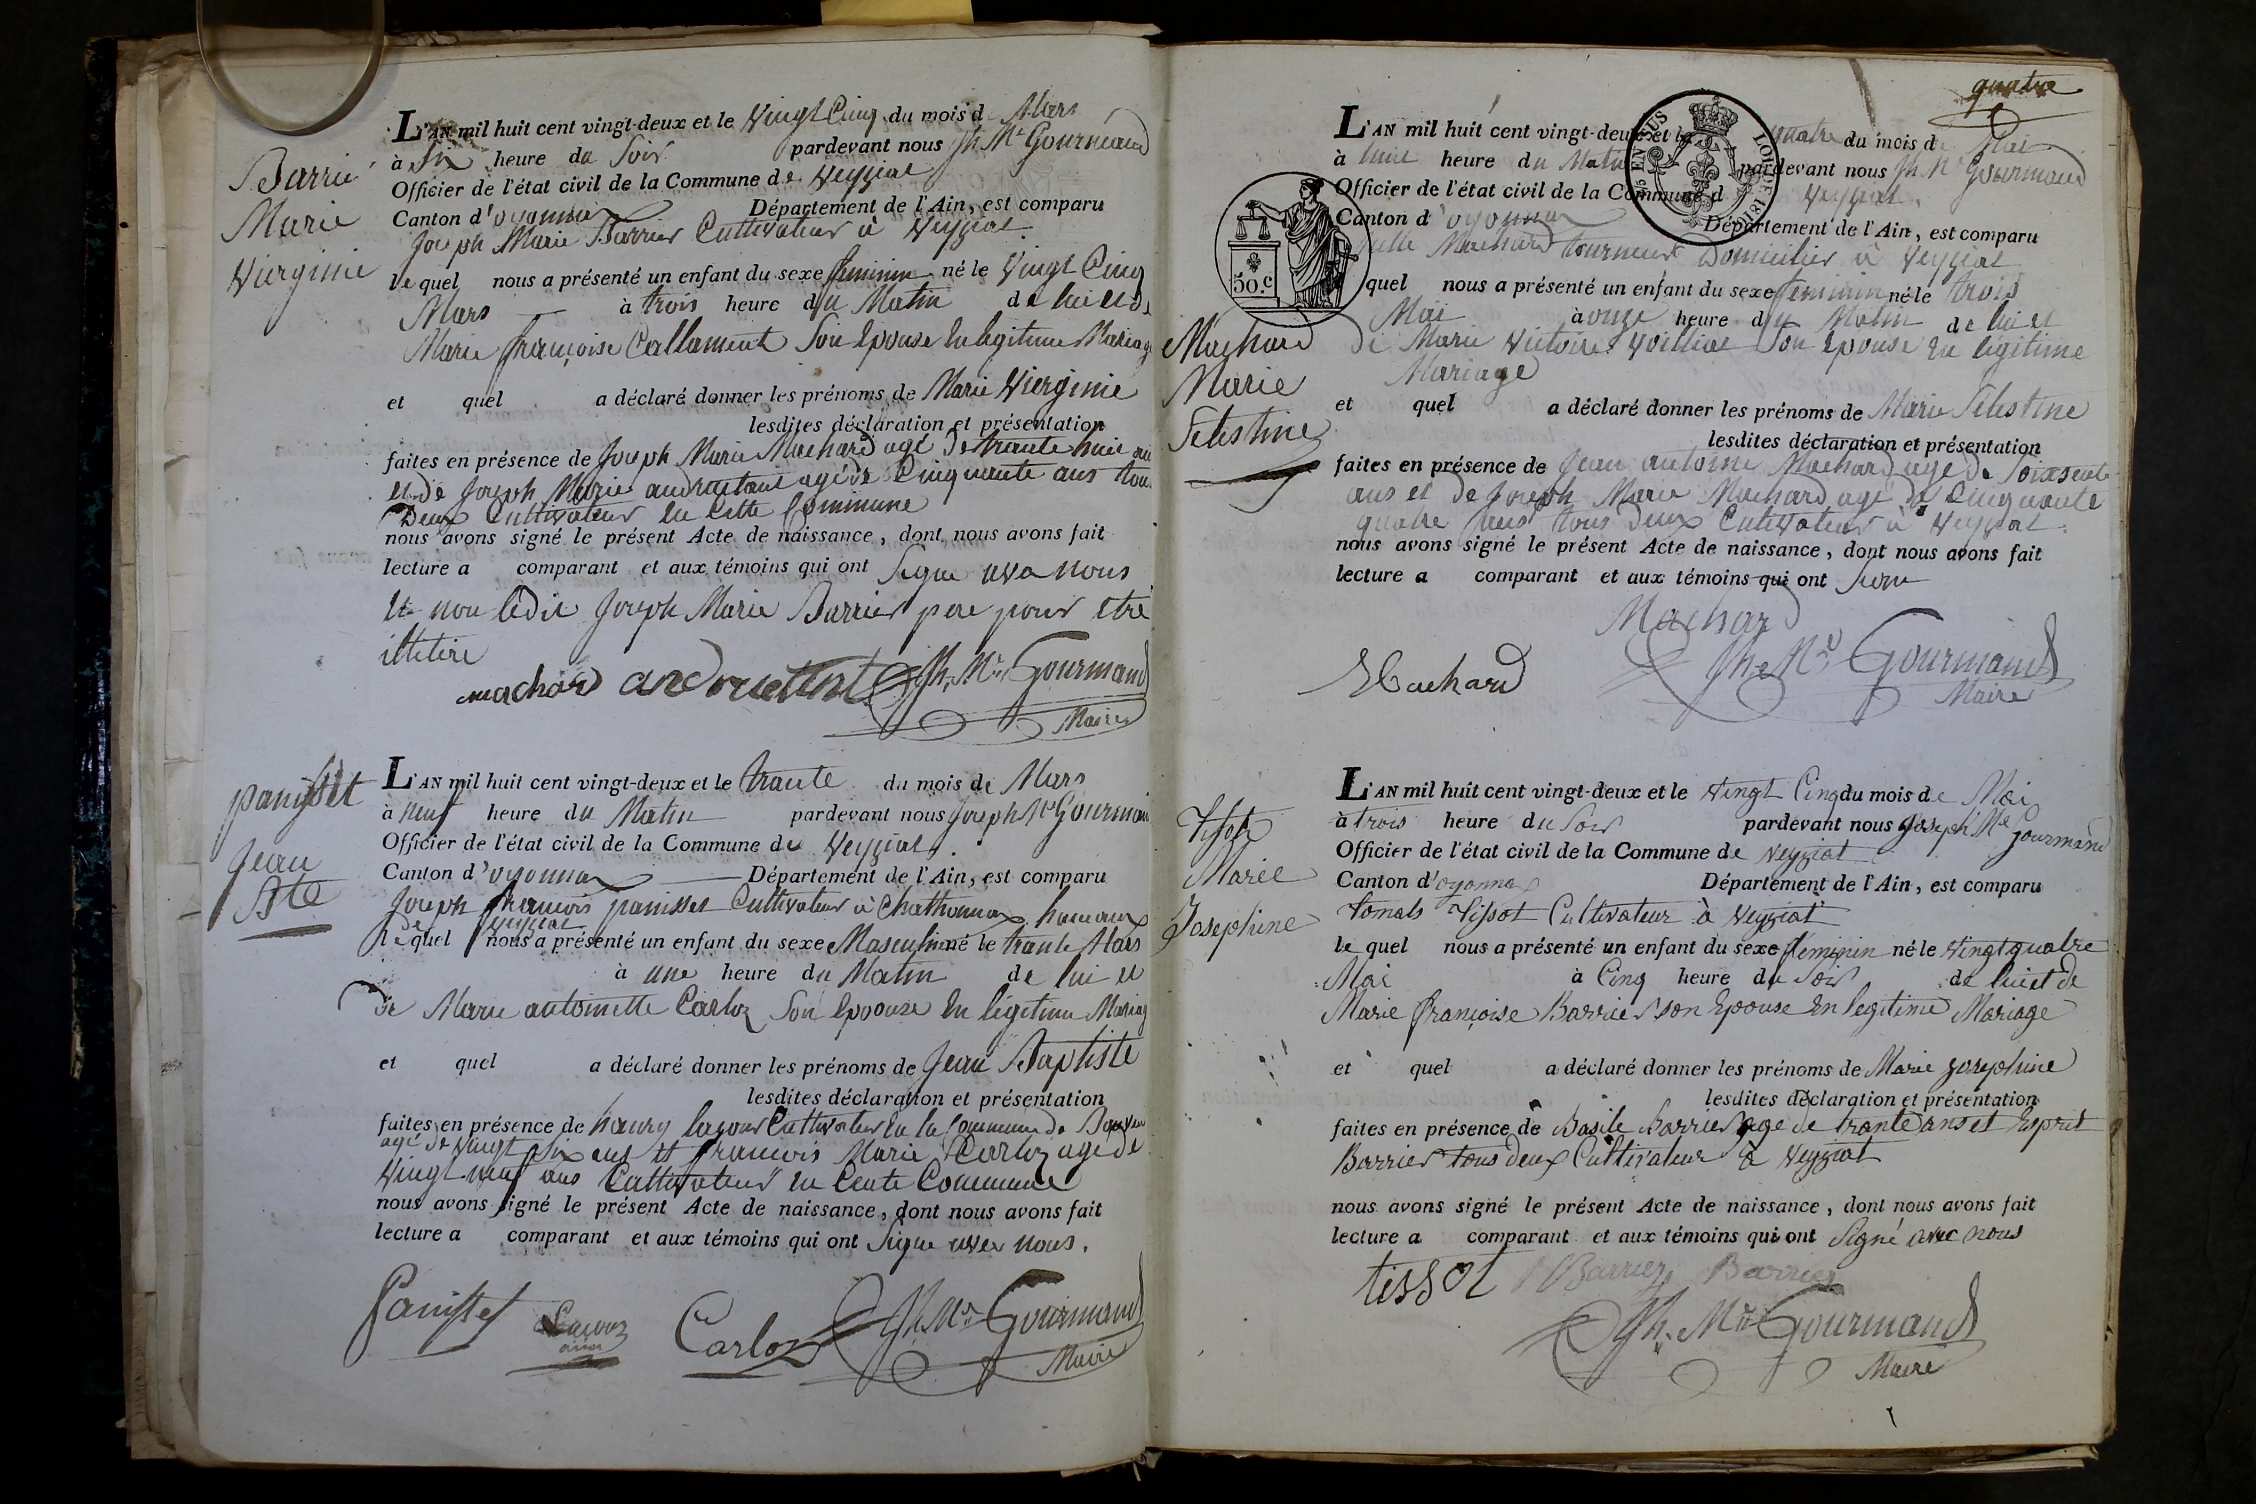 Barrié
Marie
Viergine
L'AN mil huit cent vingt-deux et le Vingt Cinq du mois d Mars
à Six heure du Soir pardevant nous Jh Mie Gourmand
Officier de l'état civil de la Commune de Veyziat
Canton d'oyonnax Département de l'Ain, est comparu
Joseph Marie Barrier Cultivateur à Veyziat
le quel nous a présenté un enfant du sexe feminin né le Vingt Cinq
Mars à trois heure du Matin de lui et de
Marie françoise Callament Son Epouse en legitime Mariage
et quel a déclaré donner les prénoms de Marie Vierginie
lesdites déclaration et présentation
faites en présence de Joseph Marie Machard agé de trante huit an
et de Joseph Marie agé de Cinquante ans tous
Deux Cultivateur en Cette Commune
nous avons signé le présent Acte de naissance, dont nous avons fait
lecture a comparant et aux témoins qui ont Signe nous
et non ledit Joseph Marie Barrier pere pour etre
illetere
machard Jh Mie Gourmand
Maire
panisset
Jean
Bte
L'AN mil huit cent vingt-deux et le trante du mois de Mars
à neuf heure du Matin pardevant nous Joseph Mie Gourmand
Officier de l'état civil de la Commune de Veyziat
Canton d'oyonnax Département de l'Ain, est comparu
Joseph francois panisset Cultivateur à Chatonnax hameaux
de Veyziat
le quel nous a présenté un enfant du sexe Masculin né le trante Mars
à une heure du Matin de lui et
de Marie antoinette Carloz Son Epoouse en légitime Mariag
et quel a déclaré donner les prénoms de Jean Baptiste
lesdites déclaration et présentation
faites en présence de haury lacour Cultivateur en la Commune de
agé de Vingt Six ans et francois Marie Carloz agé de
Vingt neuf ans Cultivateur en Cente Commune
nous avons signé le présent Acte de naissance, dont nous avons fait
lecture a comparant et aux témoins qui ont Signe avec nous.
Panisset Carloz Jh Mie Gourmand
Maire
quatre
L'AN mil huit cent vingt-deux et le quatre du mois de Mai
à huit heure du Matin pardevant nous Jh Mie Gourmand
Officier de l'état civil de la Commune d Veyziat
Canton d'oyonnax Département de l'Ain, est comparu
Machard tourneur Domicilier à Veyziat
50.c
quel nous a présenté un enfant du sexe feminin né le trois
Mai à onze heure du Matin de lui et
de Marie Victoire Voilliat Son Epouse en légitime
Mariage
Machard
Marie
Selestine
et quel a déclaré donner les prénoms de Marie Selestine
lesdites déclaration et présentation
faites en présence de Jean antoine Machard agé de Soixsente
ans et de Joseph Marie Machard agé de Cinquante
quatre ans tous Deux Cultivateur à Veyziat
nous avons signé le présent Acte de naissance, dont nous avons fait
lecture a comparant et aux témoins qui ont
Machard
Machard Jh Mie Gourmand
Maire
Tissot
Marie
Josephine
L'AN mil huit cent vingt-deux et le Vingt Cinq du mois de Mai
à trois heure du Soir pardevant nous Joseph Mie Gourmand
Officier de l'état civil de la Commune de Veyziat
Canton d'oyonnax Département de l'Ain, est comparu
tomas Tissot Cultivateur à Veyziat
le quel nous a présenté un enfant du sexe féminin né le Vingt quatre
Mai à Cinq heure du Soir de lui et de
Marie françoise Barrier son Epouse en legitime Mariage
et quel a déclaré donner les prénoms de Marie Josephine
lesdites déclaration et présentation
faites en présence de Basile Barrier age de trante ans et Esprit
Barrier tous deux Cultivateur à Veyziat
nous avons signé le présent Acte de naissance, dont nous avons fait
lecture a comparant et aux témoins qui ont Signé avec nous
tissot Barrier Barrier
Jh. Mie Gourmand
Maire